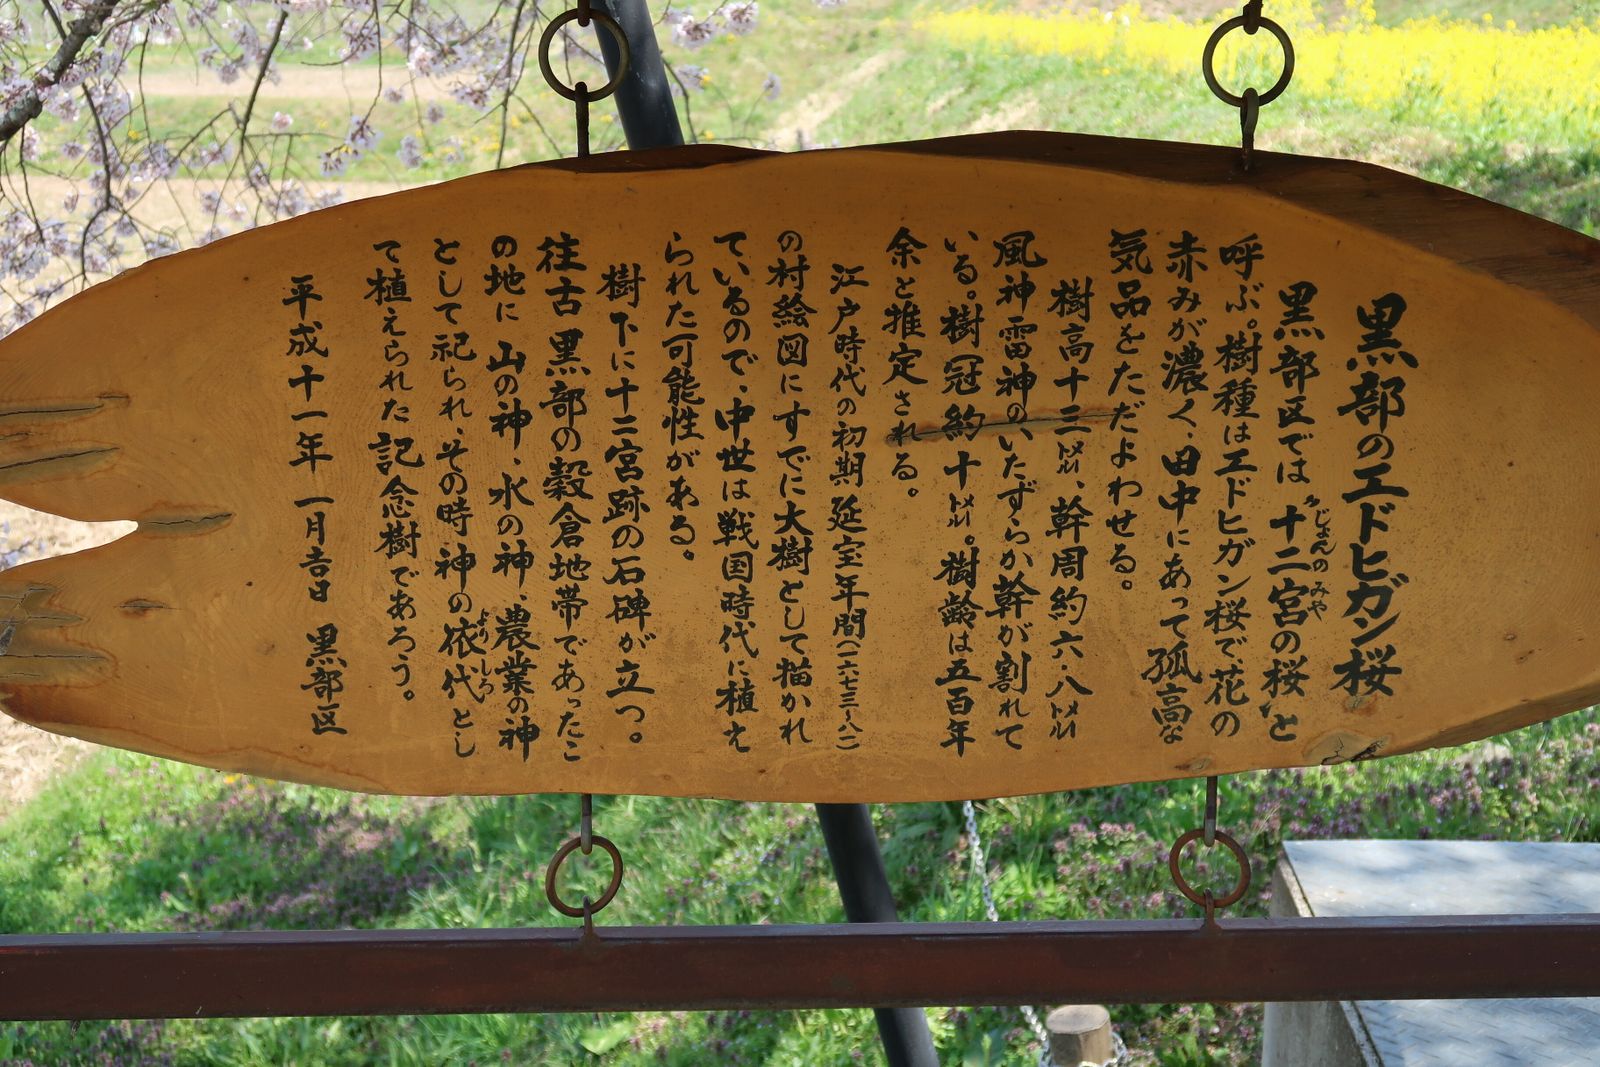 黒部のエドヒガン桜
黒部区では〝十二宮の桜〟と
じょんのみや
呼ぶ。樹種はエドヒガン桜で、花の
赤みが濃く、田中にあって孤高な
気品をただよわせる。
樹高十三㍍、幹周約六・八㍍
風神雷神のいたずらか幹が割れて
いる。樹冠約十㍍。樹齢は五百年
余と推定される。
江戸時代の初期延宝年間(一六七三〜八一)
の村絵図にすでに大樹として描かれ
ているので、中世は戦国時代に植え
られた可能性がある。
樹下に十二宮跡の石碑が立つ。
往古黒部の穀倉地帯であったこ
の地に山の神、水の神、農業の神
として祀られ、その時神の依代とし
よりしろ
て植えられた記念樹であろう。
平成十一年 一月吉日 黒部区